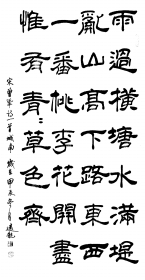 雨過橫塘水滿堤
亂山高下路東西
一番桃李花開盡
惟有青〻草色齊
宋曾鞏詩一首城南 歲在甲辰冬月